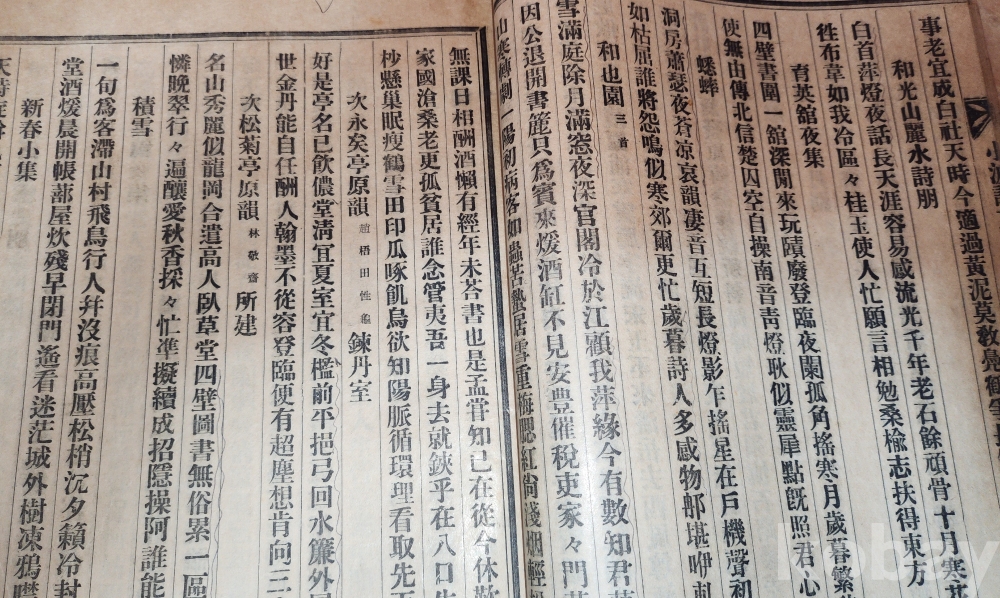 事老宜成白社天時今適過黃泥莫敎
和光山麗水詩朋
白首萍燈夜話長天涯容易感流光千年老石餘頑骨十月寒花
徃布韋如我冷區々桂玉使人忙願言相勉桑楡志扶得東方
育英舘夜集
四壁書圍一舘深閒來玩蹟廢登臨夜闌孤角搖寒月歲暮繁
使無由傳北信楚囚空自操南音靑燈耿似靈犀點旣照君心
蟋蟀
洞房蕭瑟夜蒼凉哀韻凄音互短長燈影乍搖星在戶機聲初
如枯居誰將怨鳴似寒郊爾更忙歲暮詩人多感物郍堪咿
和也園 三首
雪滿庭除月滿窓夜深官閣冷於江顧我萍緣今有數知君
因公退開書簏只爲賓來煖酒缸不見安豊催稅吏家々門
山寒轉劇一陽初病客如蟲苦蟄居雪重梅腮紅尙淺烟輕
無課日相酬酒懶有經年未答書也是孟甞知已在從今休歎
家國滄桑老更孤貧居誰念管夷吾一身去就鋏乎在八口
杪懸巢眠瘦鶴雪田印瓜啄飢烏欲知陽脈循環理看取先
次永矣亭原韻 趙梧田性 鍊丹室
好是亭名已飮儂堂淸宜夏至宜冬檻前平挹弓回水簾外
世金丹能自任酬人翰墨不從容登臨便有超塵想肯向三
次松菊亭原韻 林敬齋 所建
名山秀麗似龍岡合遺高人臥草堂四壁圖書無俗累一區
憐晩翠行々遍釀愛秋香採々忙準擬續成招隱操阿誰能
積雪
一旬爲客滯山村飛鳥行人幷沒痕高壓松梢沉夕籟冷封
堂酒煖晨開帳蔀屋炊殘早閉門遙看迷茫城外樹凍鴉噤
新春小集
天時
kobay